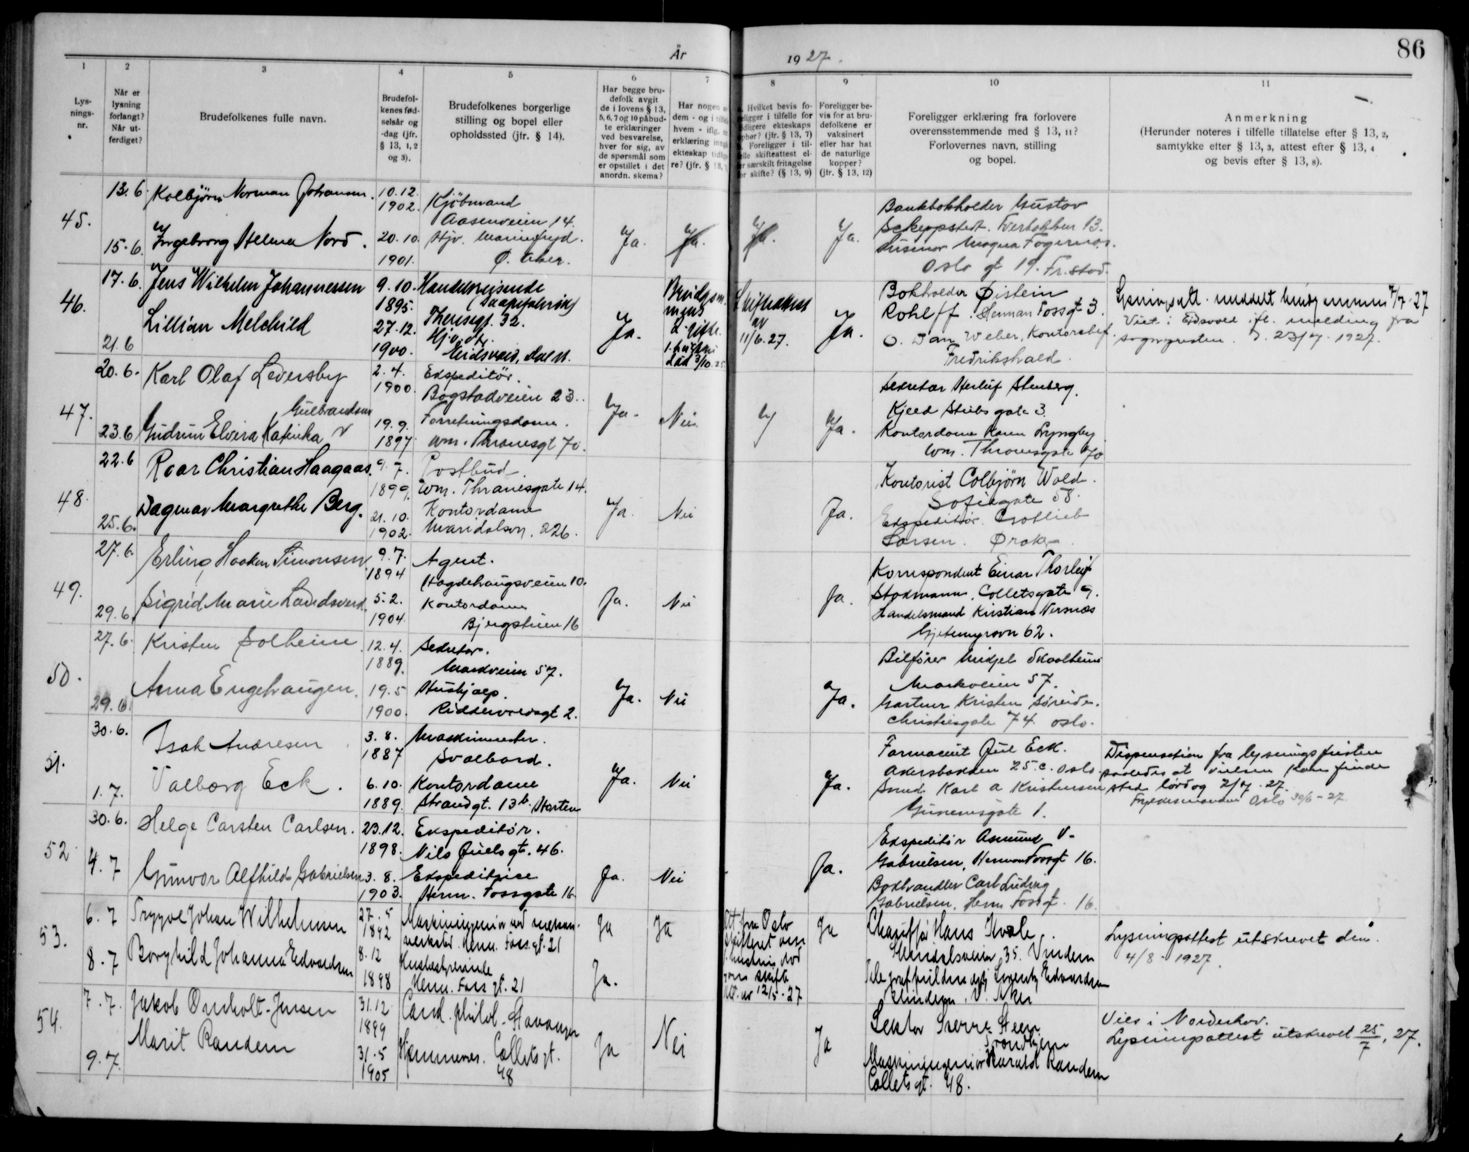 År 1927.
86
1
Lys-
nings-
nr.
2
Når er
lysning
forlangt?
Når ut-
ferdiget?
3
Brudefolkenes fulle navn.
4
Brudefol-
kenes fød-
selsår og
-dag (jfr.
§ 13, 1, 2
og 3).
5
Brudefolkenes borgerlige
stilling og bopel eller
opholdssted (jfr. § 14).
6
Har begge bru-
defolk avgit
de i lovens § 13,
5, 6, 7 og 10 påbud-
te erklæringer
ved besvarelse,
hver for sig, av
de spørsmål som
er opstillet i det
anordn. skema?
7
Har nogen
dem - og i
hvem -
erklæring
ekteskap
re? (jfr. § 13,
8
Hvilket bevis fo-
religger i tilfelle for
tidligere ekteskaps
ophør? (jfr. § 13, 7)
Foreligger i til-
felle skifteattest el-
ler særskilt fritagelse
for skifte? (§ 13, 9)
9
Foreligger be-
vis for at bru-
defolkene er
vaksinert
eller har hat
de naturlige
kopper?
(jfr. § 13, 12)
10
Foreligger erklæring fra forlovere
overensstemmende med § 13, 11?
Forlovernes navn, stilling
og bopel.
11
Anmerkning
(Herunder noteres i tilfelle tillatelse efter § 13, 2,
samtykke efter § 13, 3, attest efter § 13, 4
og bevis efter § 13, 8).
45.
13.6
15.6.
Kolbjörn Norman Johansen.
Ingeborg Helena Nord.
10.12.
1902.
20.10.
1901.
Kjöbmand
Aasenveien 14.
Ø. Aker.
Ja.
Ja.
Ja.
Ja.
Bankbokholder Gustav
Scheppstedt.
Oslo gt 19. Fr.stad.
46.
17.6.
21.6
Jens Wilhelm Johannessen
Lillian Melchild
9.10.
1895.
27.12.
1900.
Handelsreisende
Theresegt. 32.
Ja.
Skifteattest
av
11/6.27.
Ja.
Bokholder Øistein
Rohlff. Herman Fossgt 3.
O. Dan Weber, Kontorchef
Fredrikshald.
Lysningsatt. meddelt 7/7.27
Viet i Eidsvold ifl. melding fra
sognepresten. D. 23/7.1927.
47.
20.6.
23.6
Karl Olaf Ledersby
Gulbrandsen
Gudrun Elvira Katinka
2.4.
1900.
19.9.
1897
Ekspeditör.
Bogstadveien 23.
Forretningsdame.
Wm. Thranesgt 70.
Ja.
Nei
Ja.
Sekretær Herluf Stenberg.
Kjeld Stubs gate 3
Kontordame Karen Lyngby
Wm. Thranesgate 70
48.
22.6
25.6.
Roar Christian Haagaas.
Dagmar Margrethe Berg.
9.7.
1899.
21.10.
1902.
Postbud.
Wm. Thranesgate 14.
Kontordame
Maridalsvn. 226.
Ja.
Nei
Ja.
Kontorist Colbjørn Wold.
Sofiegate 58.
Ekspeditör Gottlieb
Larsen. Ørak.
49.
27.6.
29.6
Erling Haakon Simonsen.
Sigrid Marie
9.7.
1894
5.2.
1904.
Agent.
Hegdehaugsveien 10.
Kontordame
Bjergstien 16
Ja.
Nei
Ja.
Korrespondent Einar Thorleif
Stadmann, Colletsgate 9.
Handelsmand Kristian Vernæs
Gjetemyrsvn 62.
50.
27.6.
29.6.
Kristen Solheim
Anna Engehaugen.
12.4.
1889.
19.5
1900.
Sekretær.
Markveien 57.
Hushjælp.
Riddervoldsgt 2.
Ja.
Nei
Ja.
Bilfører Mikjel Skaalheim
Markveien 57.
Gartner Kristen Søreide.
Christiesgate 74. Oslo.
51.
30.6.
1.7.
Isak Andresen
Valborg Eck.
3.8.
1887
6.10.
1889.
Maskinmester.
Svalbard.
Kontordame
Strandgt. 13b, Horten
Ja.
Nei
Ja.
Farmaceut Qul Eck.
Akersbakken 25.c. Oslo
Smed Karl A Kristensen
Grünersgate 1.
Dispensation fra lysningsfristen
saaledes at vielsen kan finde
sted lørdag 2/7.27.
Fylkesmannen Oslo 30/6-27
52
30.6.
4.7
Helge Carsten Carlsen.
Gunvor Alfhild Gabrielsen
23.12.
1898.
3.8.
1903.
Ekspeditör.
Nils Juels gt. 46.
Ekspeditrice
Herm. Fossgate 16.
Ja.
Nei
Ja.
Ekspeditör Asmund V.
Gabrielsen, Herman Fossgt 16.
Bokhandler Carl Ludvig
Gabrielsen, Herm Fossgt. 16.
53.
6.7
8.7
Trygve Johan Wilhelmsen
Borghild Johanna Edvardsen
27.5
1892
8.12
1898
Maskiningeniør ved mekan.
verksted. Herm. Foss gt. 21
Husbestyrerinde
Herm. Foss gt. 21
Ja
Ja.
Ja
Att. fra Oslo
Skifterett om
hustruens død
gom skifte
att. av 12/5.27
Ja
Chauffør Hans Kvale.
Hendalsveien 35. Vindern
V. Aker
Lysningsattest utskrevet den
4/8 1927.
54.
7.7.
9.7.
Jakob Ornholt-Jensen
Marit Randem
31.12
1899
31.5
1905
Cand. philol. Stavanger
Hjemmev. Collets gt.
48
Ja
Nei
Ja
Lektor Sverre Steen
Trondhjem
Maskiningeniør Harald Randem
Collets gt. 48.
Viet i Norderhov.
Lysningsattest utskrevet 25/7, 27.